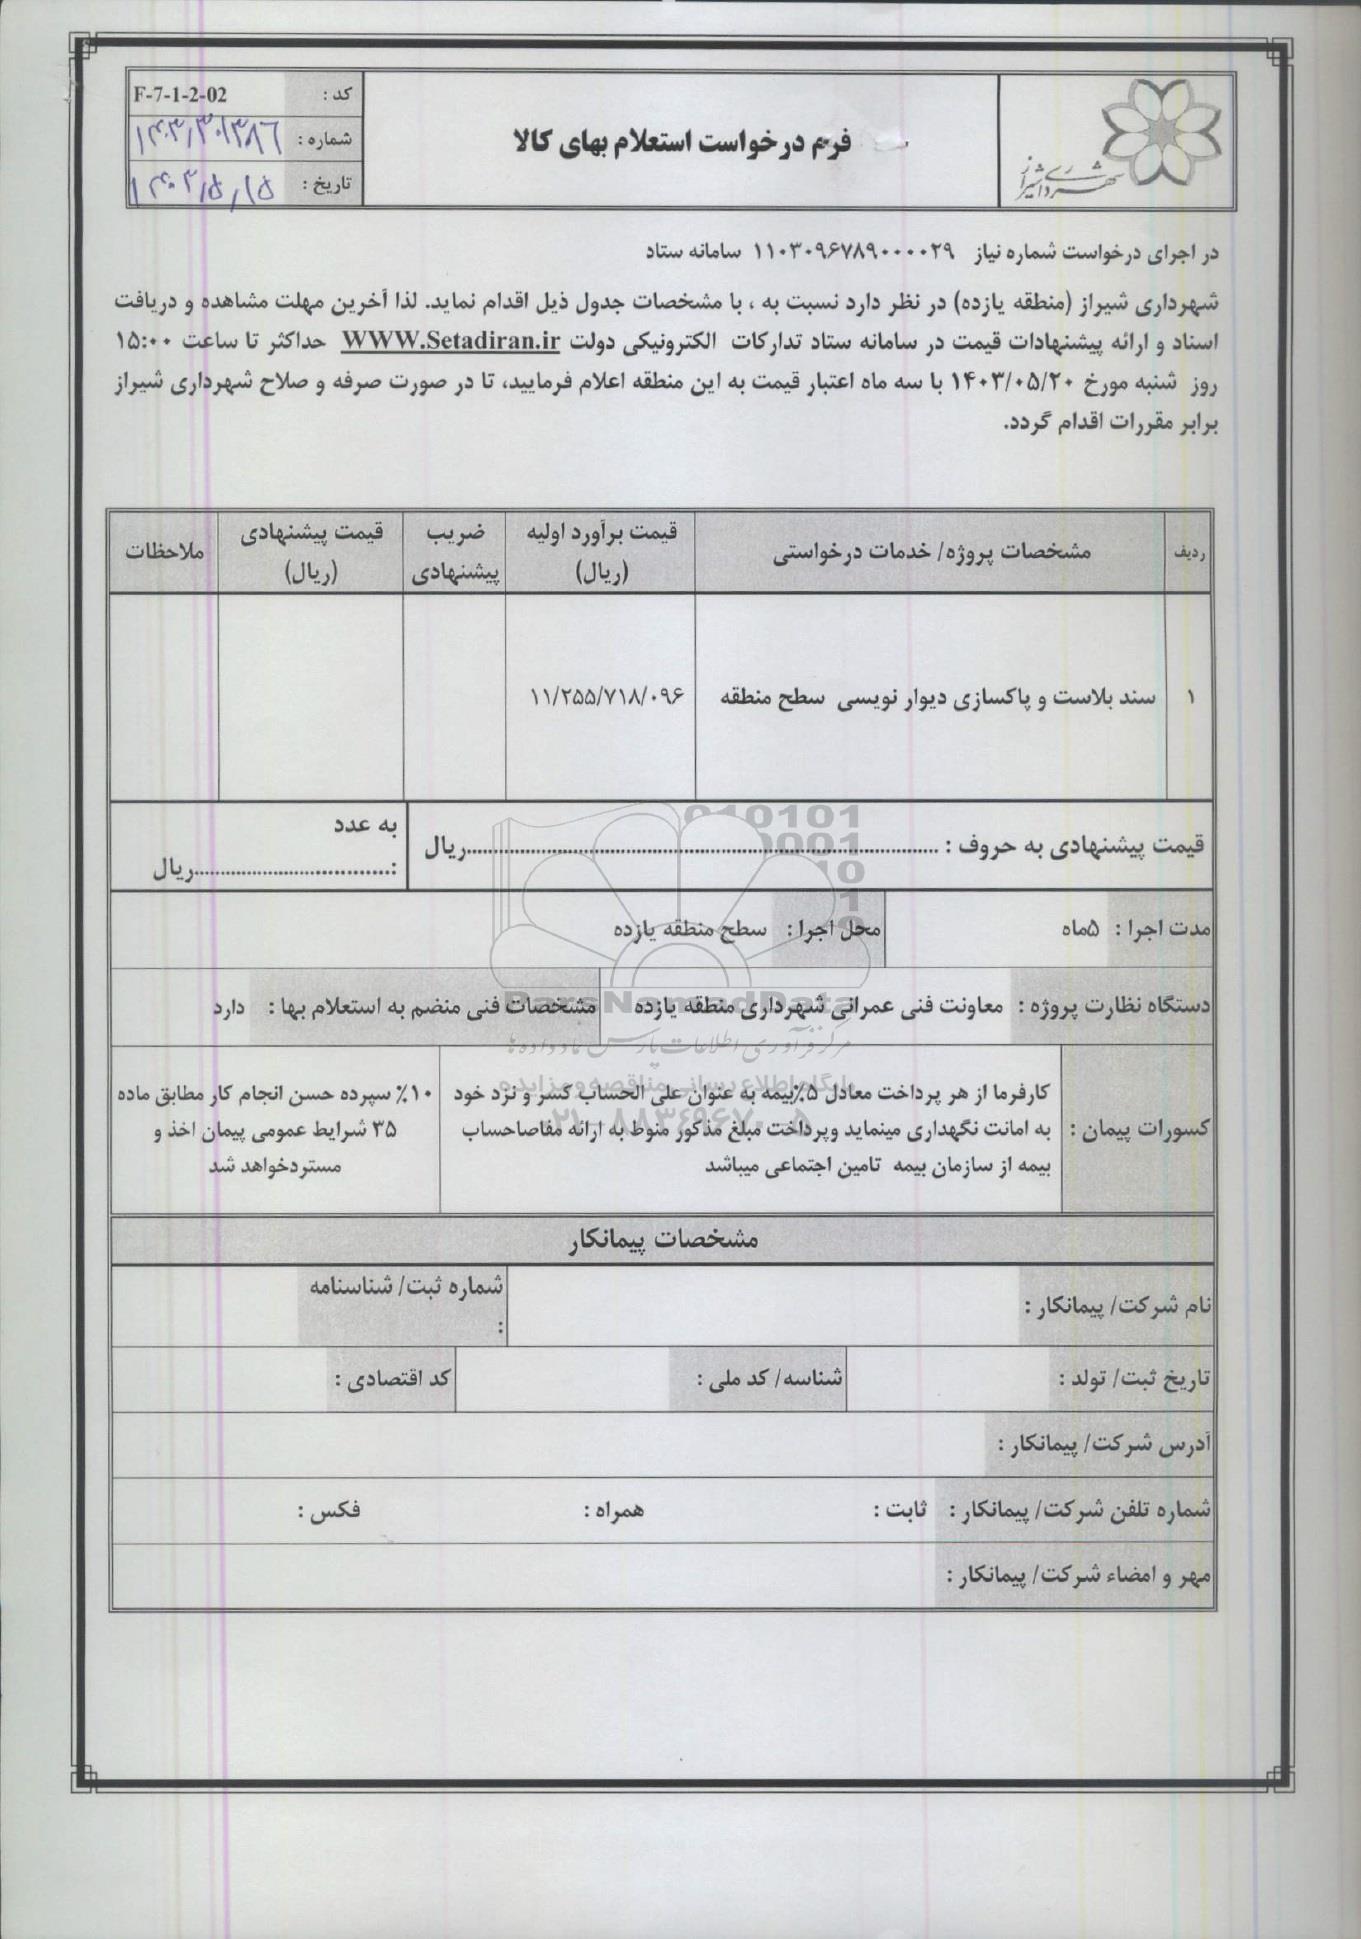 شهرداری شیراز
فرم درخواست استعلام بهای کالا
کد : F-7-1-2-02
شماره :
تاریخ : ۱۴۰۳/۵/۱۵
در اجرای درخواست شماره نیاز ۱۱۰۳۰۹۶۷۸۹۰۰۰۰۲۹ سامانه ستاد
شهرداری شیراز (منطقه یازده) در نظر دارد نسبت به ، با مشخصات جدول ذیل اقدام نماید. لذا آخرین مهلت مشاهده و دریافت
اسناد و ارائه پیشنهادات قیمت در سامانه ستاد تدارکات الکترونیکی دولت WWW.Setadiran.ir حداکثر تا ساعت ۱۵:۰۰
روز شنبه مورخ ۱۴۰۳/۰۵/۲۰ با سه ماه اعتبار قیمت به این منطقه اعلام فرمایید، تا در صورت صرفه و صلاح شهرداری شیراز
برابر مقررات اقدام گردد.
ردیف
مشخصات پروژه/ خدمات درخواستی
قیمت برآورد اولیه
(ریال)
ضریب
پیشنهادی
قیمت پیشنهادی
(ریال)
ملاحظات
۱
سند بلاست و پاکسازی دیوار نویسی سطح منطقه
۱۱/۲۵۵/۷۱۸/۰۹۶
قیمت پیشنهادی به حروف : ..........ریال
به عدد
:..........ریال
مدت اجرا : ۵ماه
محل اجرا : سطح منطقه یازده
دستگاه نظارت پروژه : معاونت فنی عمرانی شهرداری منطقه یازده
مشخصات فنی منضم به استعلام بها : دارد
کسورات پیمان :
کارفرما از هر پرداخت معادل ۵٪بیمه به عنوان علی الحساب کسر و نزد خود
به امانت نگهداری مینماید وپرداخت مبلغ مذکور منوط به ارائه مفاصاحساب
بیمه از سازمان بیمه تامین اجتماعی میباشد
۱۰٪ سپرده حسن انجام کار مطابق ماده
۳۵ شرایط عمومی پیمان اخذ و
مستردخواهد شد
مشخصات پیمانکار
نام شرکت/ پیمانکار :
شماره ثبت/ شناسنامه
:
تاریخ ثبت/ تولد :
شناسه/ کد ملی :
کد اقتصادی :
آدرس شرکت/ پیمانکار :
شماره تلفن شرکت/ پیمانکار : ثابت : همراه : فکس :
مهر و امضاء شرکت/ پیمانکار :
ParsNamadData
مرکز فرآوری اطلاعات پارس نماد داده ها
پایگاه اطلاع رسانی مناقصه و مزایده
۰۲۱-۸۸۳۴۹۶۷۰-۵